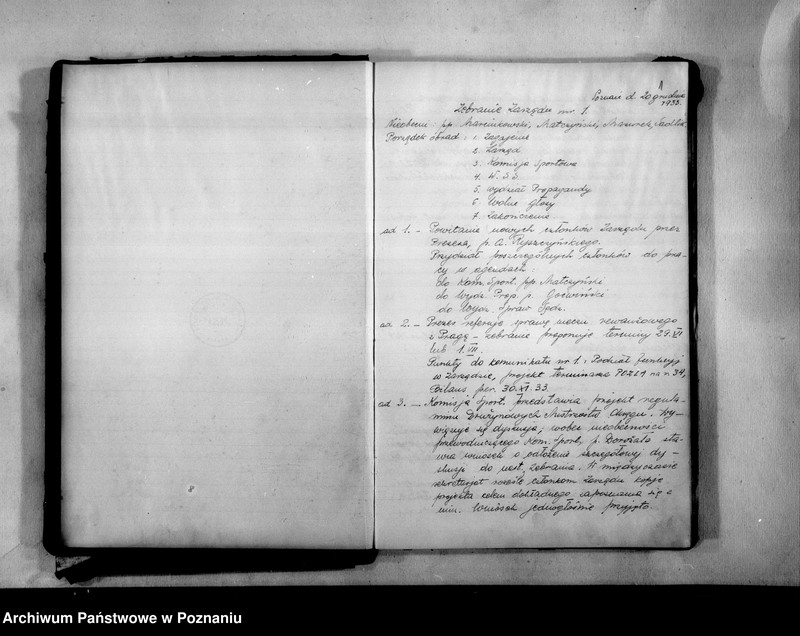 1
Poznań d. 20 grudnia
1933.
Zebranie Zarządu nr. 1.
Nieobecni pp. Marcinkowski, Matczyński, Mazurek, Sadlik
Porządek obrad: 1. Zagajenie
2. Zarząd
3. Komisja Sportowa
4. W. S. S.
5. Wydział Propagandy
6. Wolne głosy
7. Zakończenie
ad 1. – Powitanie nowych członków Zarządu przez
Prezesa, p. A. Ryszczyńskiego.
Przydział poszczególnych członków do pra-
cy w agendach:
do Kom. Sport. pp. Matczyński
do Wydz. Prop. p.
do Wydz. Spraw Sędz.
ad 2. – Prezes referuje sprawę meczu rewanżowego
z Pragą – zebranie proponuje terminy 29. VI
lub 1. VII.
Punkty do komunikatu nr. 1: Podział funkcyj
w Zarządzie, projekt terminarza POZLA na r. 34,
Bilans per. 30. XI. 33.
ad 3. – Komisja Sport. przedstawia projekt regula-
minu Drużynowych Mistrzostw Okręgu. Wy-
więzuje się dyskusja, wobec nieobecności
przewodniczącego Kom. Sport. p. sta-
wia wniosek o odłożenie szczegółowej dy-
skusji do nast. zebrania. W międzyczasie
sekretarjat roześle członkom Zarządu kopje
projektu celem dokładnego zapoznania się z
nim. Wniosek jednogłośnie przyjęto.
Archiwum Państwowe w Poznaniu